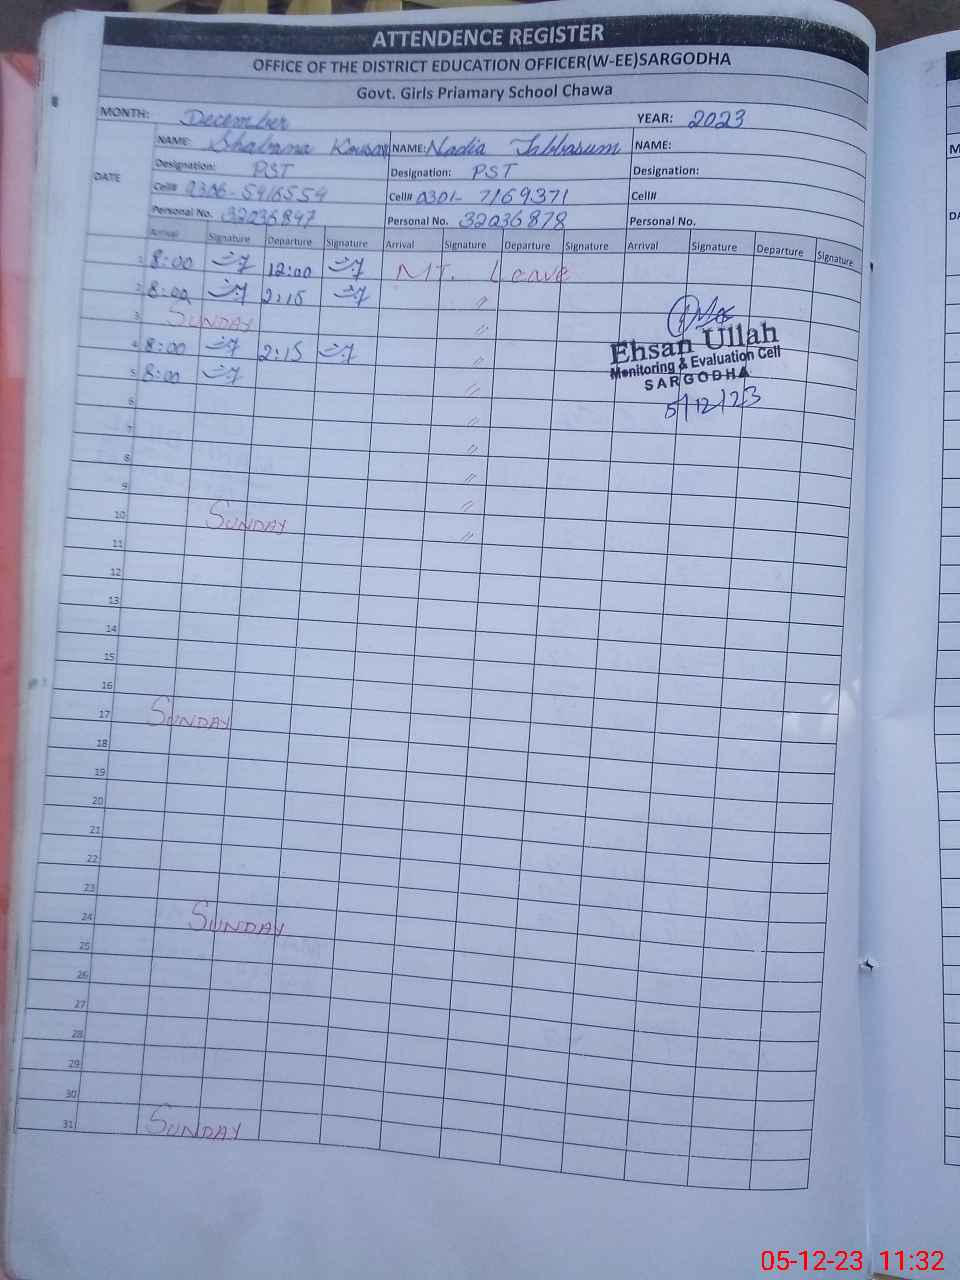 ATTENDENCE REGISTER
OFFICE OF THE DISTRICT EDUCATION OFFICER(W-EE)SARGODHA
Govt. Girls Priamary School Chawa
MONTH: December YEAR: 2023
DATE
NAME: Shabana Kousar NAME: Nadia Tabbasum NAME:
Designation: PST Designation: PST Designation:
Cell# 0306-5416554 Cell# 0301-7169371 Cell#
Personal No. 32036897 Personal No. 32036878 Personal No.
Arrival Signature Departure Signature Arrival Signature Departure Signature Arrival Signature Departure Signature
1 8:00 12:00 MT. Leave
2 8:00 2:15 "
3 SUNDAY "
4 8:00 2:15 "
5 8:00 "
6 "
7 "
8 "
9 "
10 SUNDAY "
11
12
13
14
15
16
17 SUNDAY
18
19
20
21
22
23
24 SUNDAY
25
26
27
28
29
30
31 SUNDAY
Ehsan Ullah
Monitoring & Evaluation Cell
SARGODHA
5/12/23
05-12-23 11:32